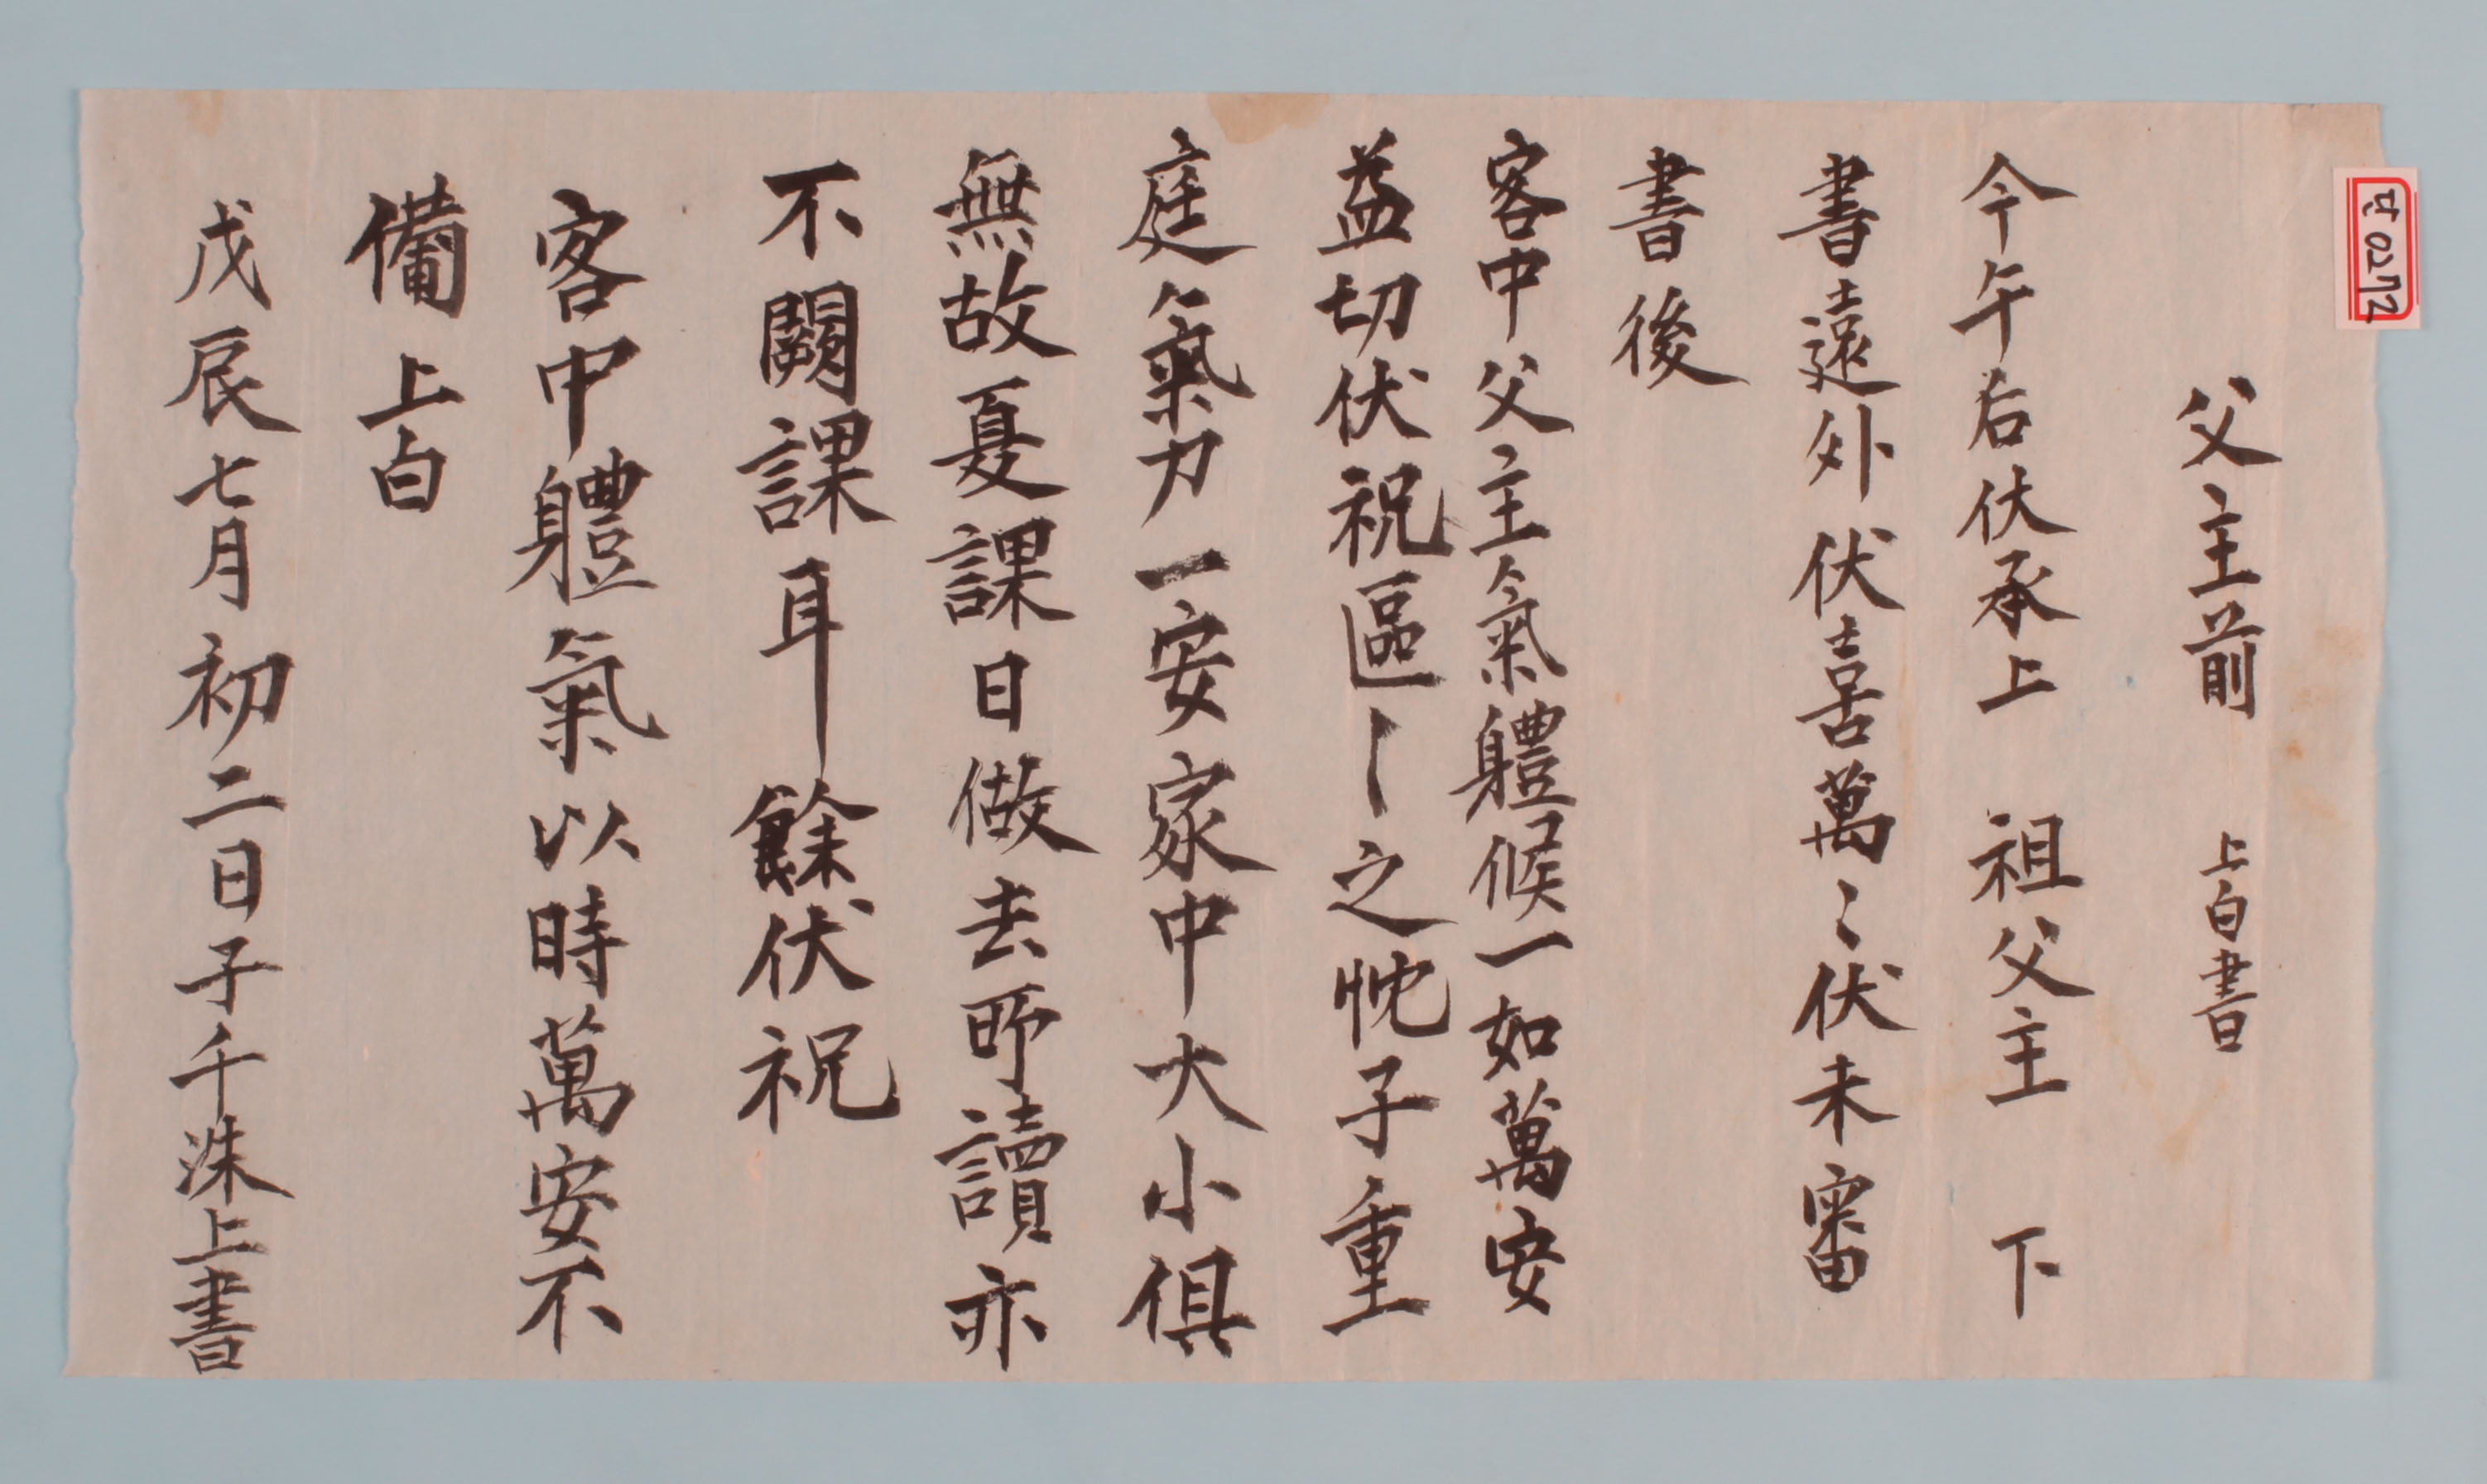 父主前 上白書
今午后伏承上 祖父主 下
書遠外伏喜萬〻伏未審
書後
客中父主氣軆候一如萬安
益切伏祝區〻之忱子重
庭氣力一安家中大小俱
無故憂課日做去所讀亦
不闕課耳餘伏祝
客中軆氣以時萬安不
備上白
戊辰七月初二日子千洙上書